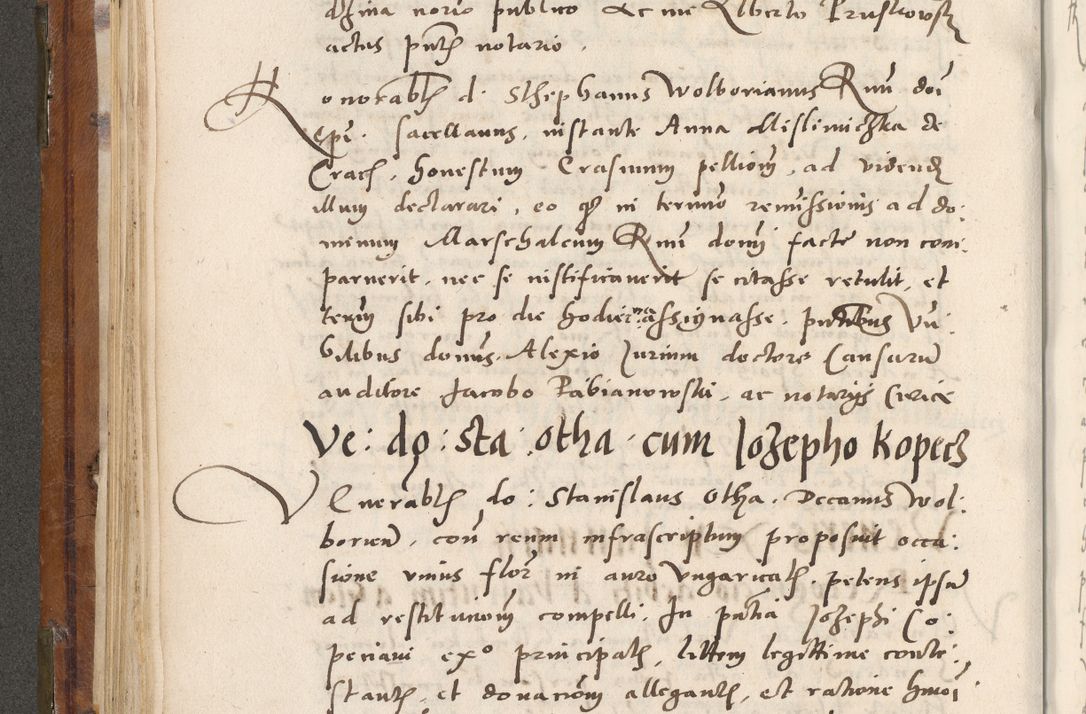 norio publico ac me Alberto Pruskowsk
actus pntz notario.
Honorablz d. Stephanus Wolborianus Rmi doi
Epi. sacellanus, instante Anna Mislimiczka de
Crac. honestum Erasmum pellionz, ad videndz
illum declarari, eo qz in termio remissionis ad do:
minum Marschalcum Rmi domi facte non com:
paruerit, nec se iustificauerit se citasse retulit, et
termz sibi pro die hodierna assignasse. pntibus Vn:
bilibus domis. Alexio Jurium doctore Causarum
auditore Jacobo Pabianowski, ac notariis Curie
Ve: do: sta: otha cum Jozepho Kopecz
Venerablz do: Stanislaus Otha. Decanus Wol:
borien, con reum infrascriptum proposuit occa:
sione vnius flor in auro Vngaricalz, petens ipsum
ad restitucionz compelli. In pntia Jozephi Co:
peciani exo principalz, littem legittime conte:
stantz, et donacionz allegantz, et ratione hmoi